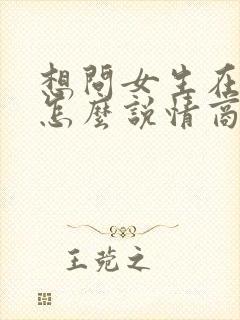 想問女生在
怎麼說情商
王菀之